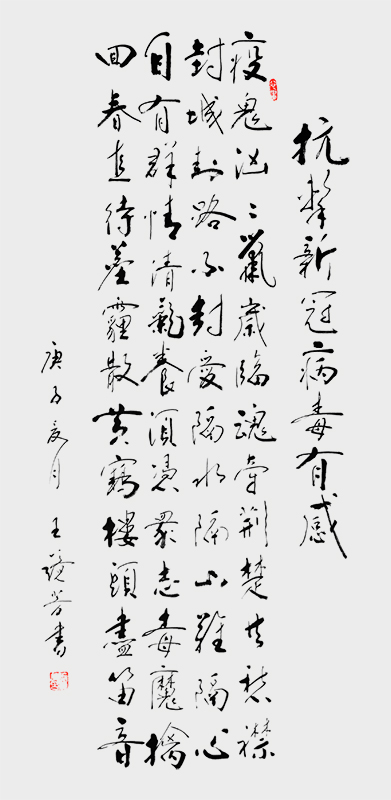 抗擊新冠病毒有感
疫鬼汹〻歲臨魂牵荆楚共愁襟
封城封路不封愛隔水隔山難隔心
自有群情清養須憑衆志毒魔擒
回春直待霾散黄鶴樓頭盡笛音
庚子夏月 王芳書